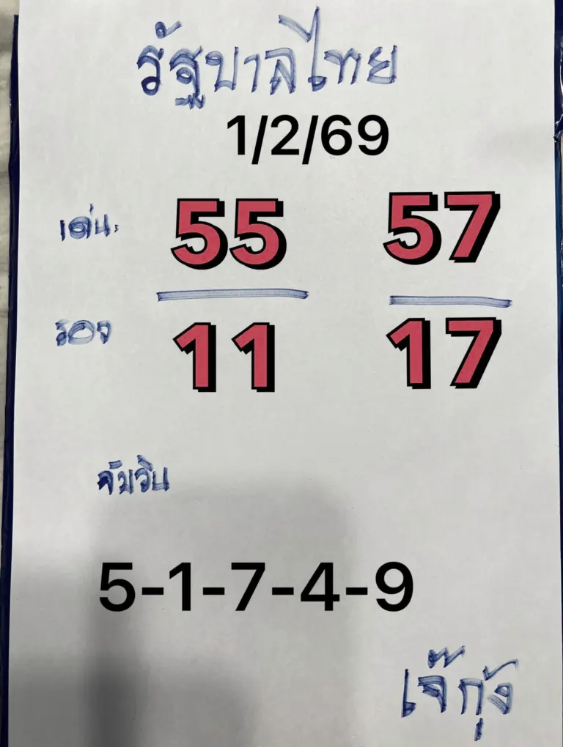 รัฐบาลไทย
1/2/69
เด่น: 55 57
รอง 11 17
จับวิน
5-1-7-4-9
เจ๊กุ้ง